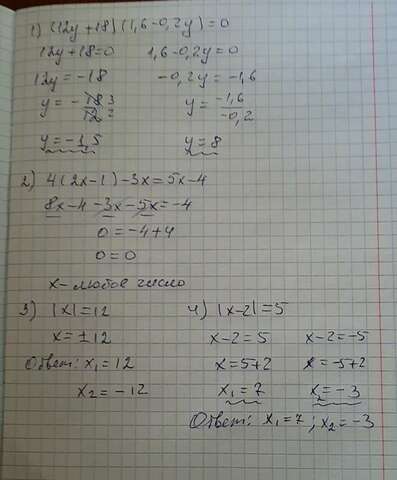 1) (12y+18)(1,6-0,2y)=0
12y+18=0 1,6-0,2y=0
12y=-18 -0,2y=-1,6
y=-18/12 3/2 y=-1,6/-0,2
y=-1,5 y=8
2) 4(2x-1)-3x=5x-4
8x-4-3x-5x=-4
0=-4+4
0=0
x-любое число
3) |x|=12 4) |x-2|=5
x=±12 x-2=5 x-2=-5
Ответ: x₁=12 x=5+2 x=-5+2
x₂=-12 x₁=7 x₂=-3
Ответ: x₁=7; x₂=-3